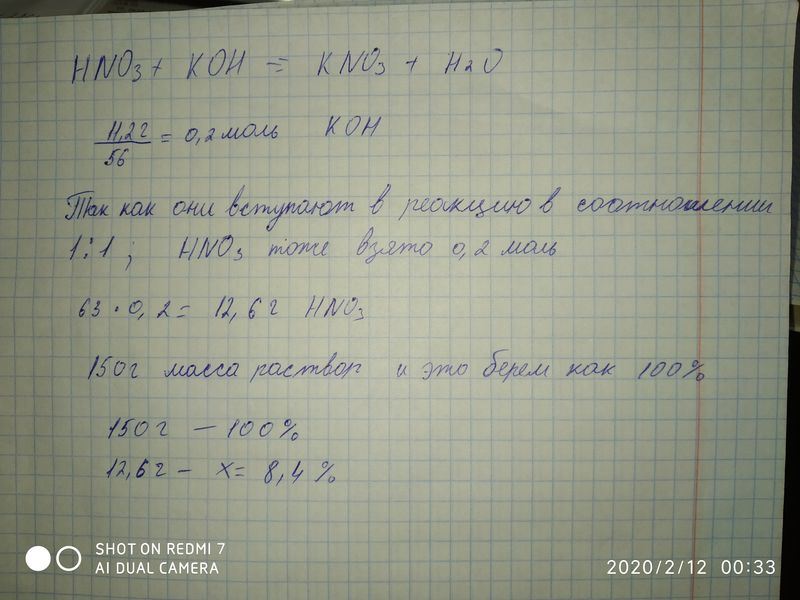 HNO3 + KOH = KNO3 + H2O
11,2г = 0,2 моль KOH
56
Так как они вступают в реакцию в соотношении
1:1; HNO3 тоже взято 0,2 моль
63 · 0,2 = 12,6 г HNO3
150г масса раствор и это берем как 100%
150г – 100%
12,6г – x = 8,4%
SHOT ON REDMI 7
AI DUAL CAMERA
2020/2/12 00:33